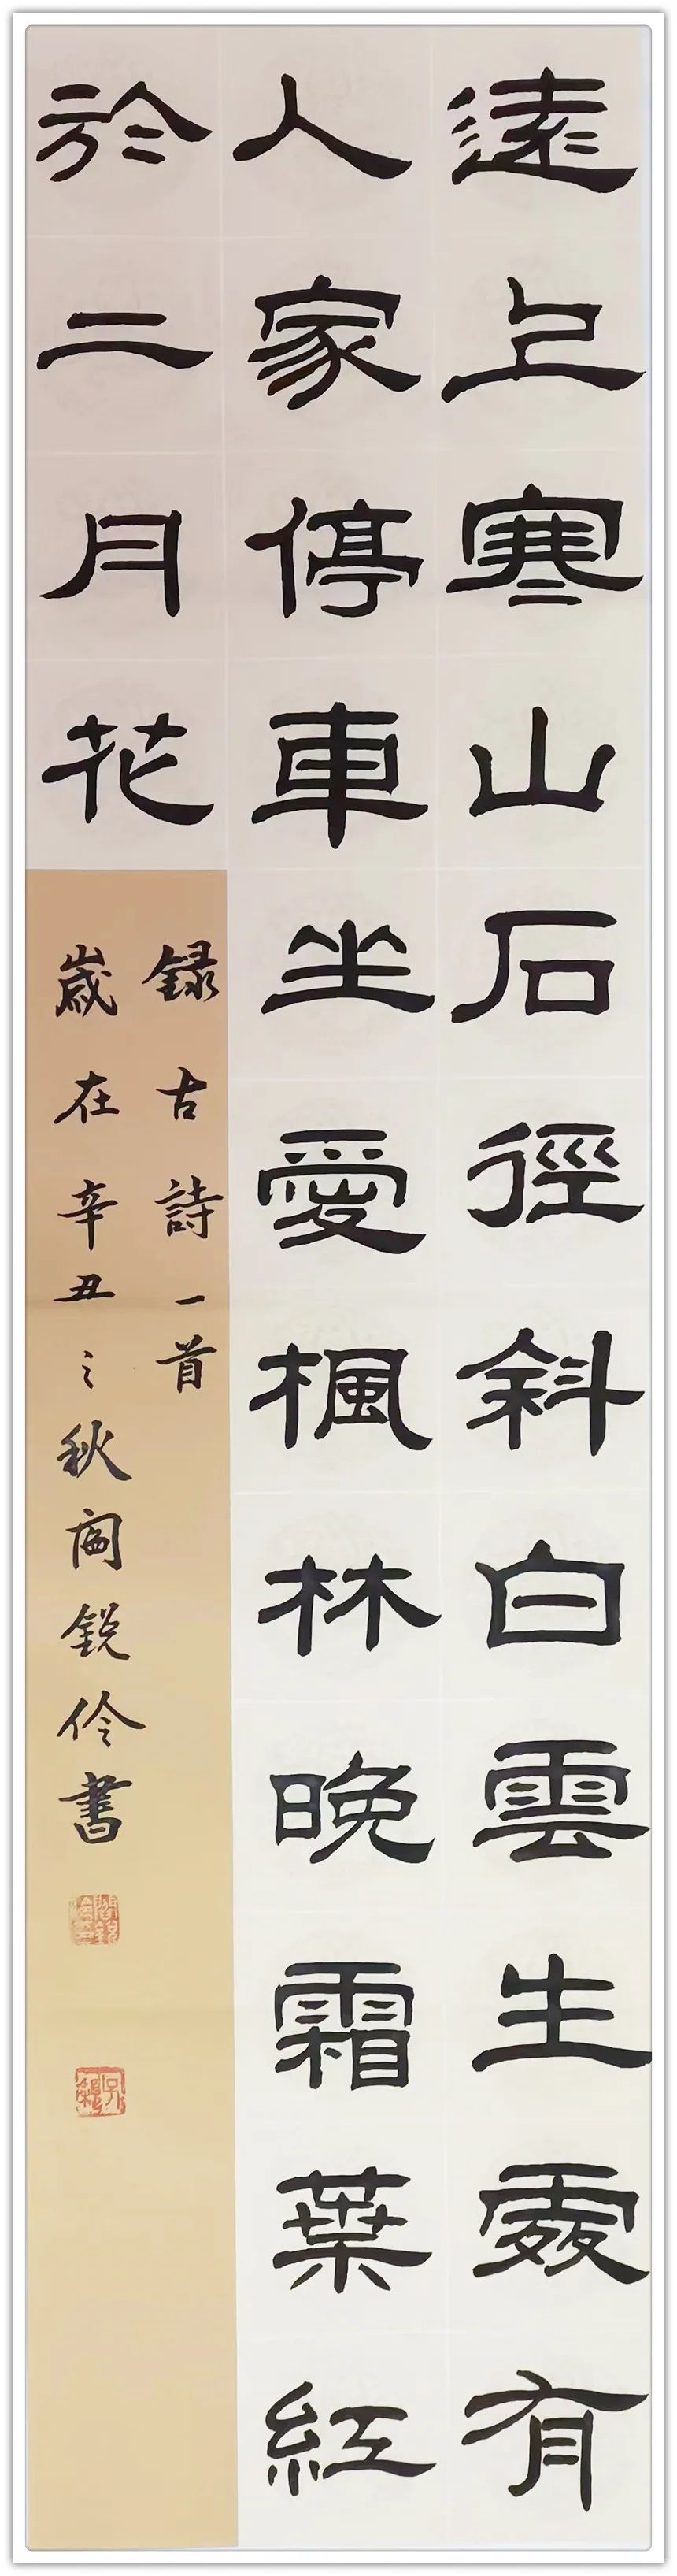 遠上寒山石徑斜白雲生處有
人家停車坐愛楓林晚霜葉紅
於二月花
録古詩一首
歲在辛丑之秋閻銳伶書